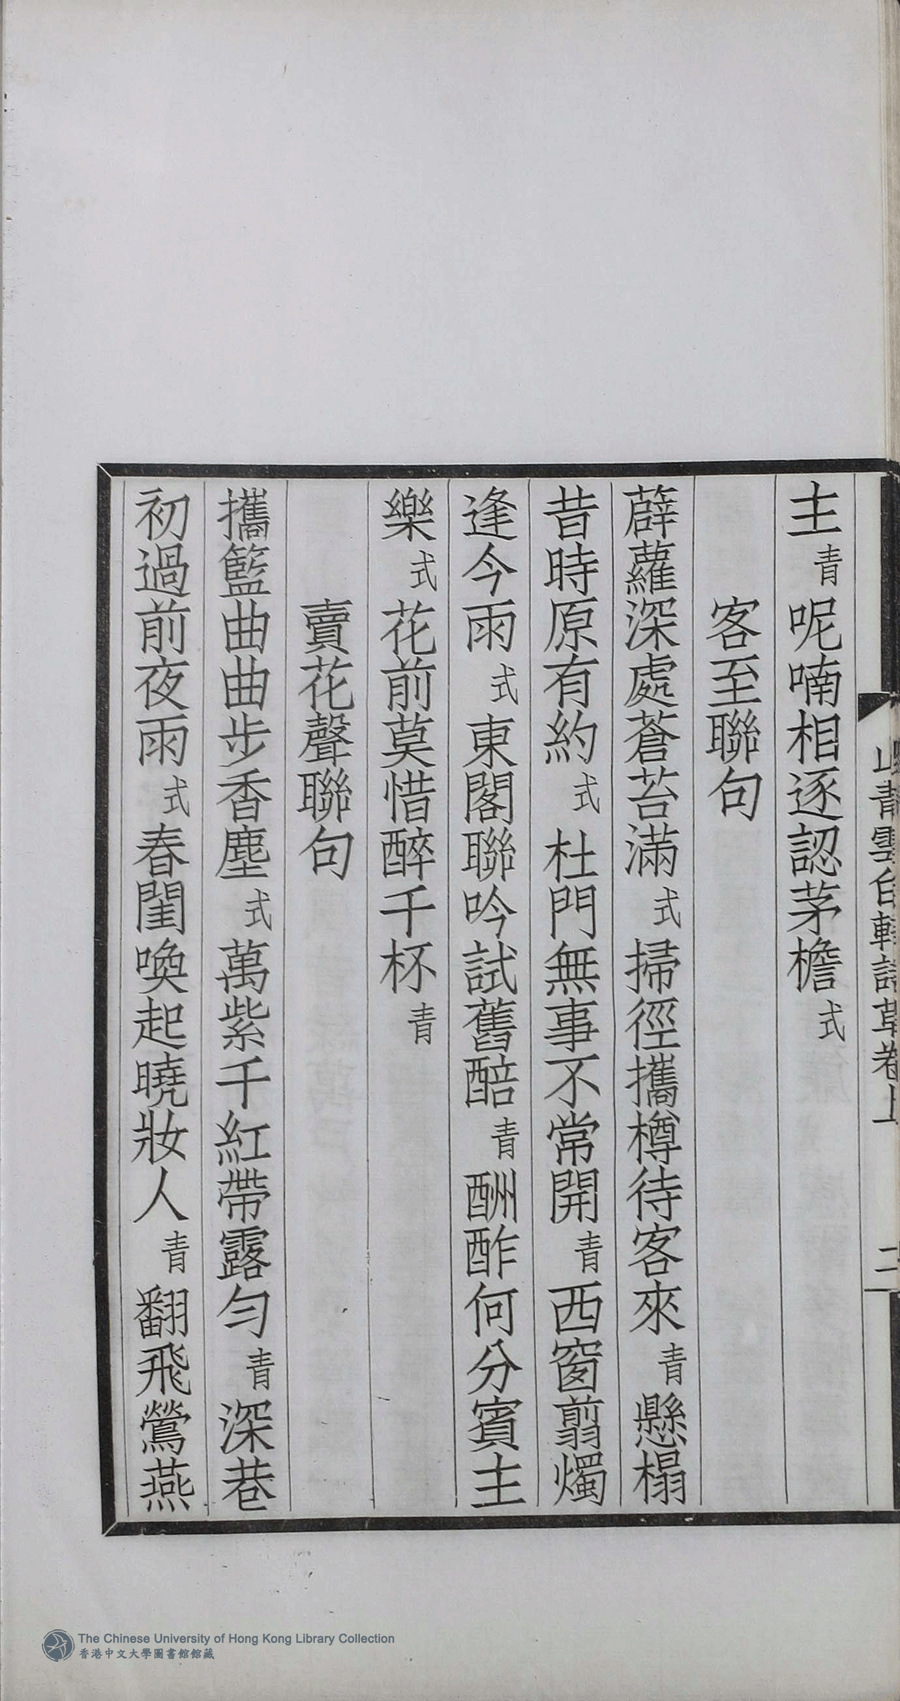 主青呢喃相逐認茅檐式
客至聯句
薜蘿深處蒼苔滿式掃徑攜樽待客來青懸榻
昔時原有約式杜門無事不常開青西窗翦燭
逢今雨式東閣聯吟試舊醅青酬酢何分賓主
樂式花前莫惜醉千杯青
賣花聲聯句
攜籃曲曲步香塵式萬紫千紅帶露勻青深巷
初過前夜雨式春閨喚起曉妝人青翻飛鶯燕
The Chinese University of Hong Kong Library Collection
香港中文大學圖書館館藏